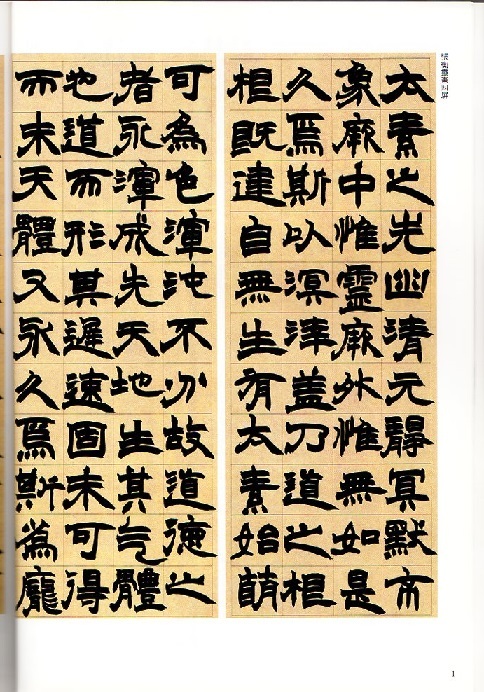 張衡靈憲四屏
太素之先幽清元靜冥默不
象厥中惟靈厥外惟無如是
久焉斯以溟涬盖乃道之相
相既建自無生有太素始萌
可為色渾沌不分故道德之
者永渾成先天地生其气體
也道而形其遲速固未可得
而未天體又永久焉斯為龐
1